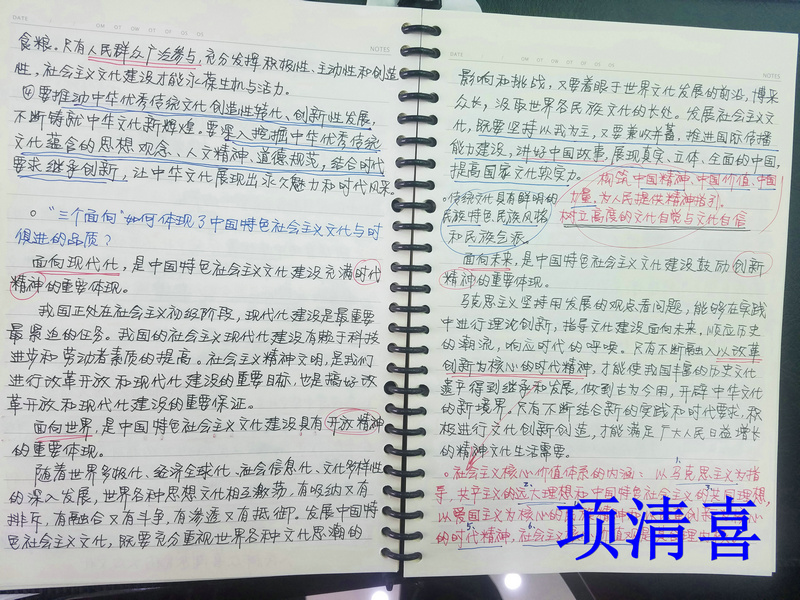 DATE
NOTES
食粮。只有人民群众广泛参与,充分发挥积极性、主动性和创造
性,社会主义文化建设才能永葆生机与活力。
④要推动中华优秀传统文化创造性转化、创新性发展,
不断铸就中华文化新辉煌。要深入挖掘中华优秀传统
文化蕴含的思想观念、人文精神、道德规范,结合时代
要求继承创新,让中华文化展现出永久魅力和时代风采。
○“三个面向”如何体现了中国特色社会主义文化与时
俱进的品质?
面向现代化,是中国特色社会主义文化建设充满时代
精神的重要体现。
我国正处在社会主义初级阶段,现代化建设是最重要
最紧迫的任务。我国的社会主义现代化建设有赖于科技
进步和劳动者素质的提高。社会主义精神文明,是我们
进行改革开放和现代化建设的重要目标,也是搞好改
革开放和现代化建设的重要保证。
面向世界,是中国特色社会主义文化建设具有开放精神
的重要体现。
随着世界多极化、经济全球化、社会信息化、文化多样性
的深入发展,世界各种思想文化相互激荡,有吸纳又有
排斥,有融合又有斗争,有渗透又有抵御。发展中国特
色社会主义文化,既要充分重视世界各种文化思潮的
DATE
NOTES
影响和挑战,又要着眼于世界文化发展的前沿,博采
众长,汲取世界各民族文化的长处。发展社会主义文
化,既要坚持以我为主,又要兼收并蓄。推进国际传播
能力建设,讲好中国故事,展现真实、立体、全面的中国,
提高国家文化软实力。
构筑中国精神、中国价值、中国
力量,为人民提供精神指引。
树立高度的文化自觉与文化自信
传统文化具有鲜明的
民族特色、民族风格
和民族气派。
面向未来,是中国特色社会主义文化建设鼓励创新
精神的重要体现。
马克思主义坚持用发展的观点看问题,能够在实践
中进行理论创新,指导文化建设面向未来,顺应历史
的潮流,响应时代的呼唤。只有不断融入以改革
创新为核心的时代精神,才能使我国丰富的历史文化
遗产得到继承和发展,做到古为今用,开辟中华文化
的新境界。只有不断结合新的实践和时代要求,积
极进行文化创新创造,才能满足广大人民日益增长
的精神文化生活需要。
○社会主义核心价值体系的内涵:以马克思主义为指
导,共产主义的远大理想和中国特色社会主义的共同理想,
以爱国主义为核心的
的时代精神,社会主义
项清喜